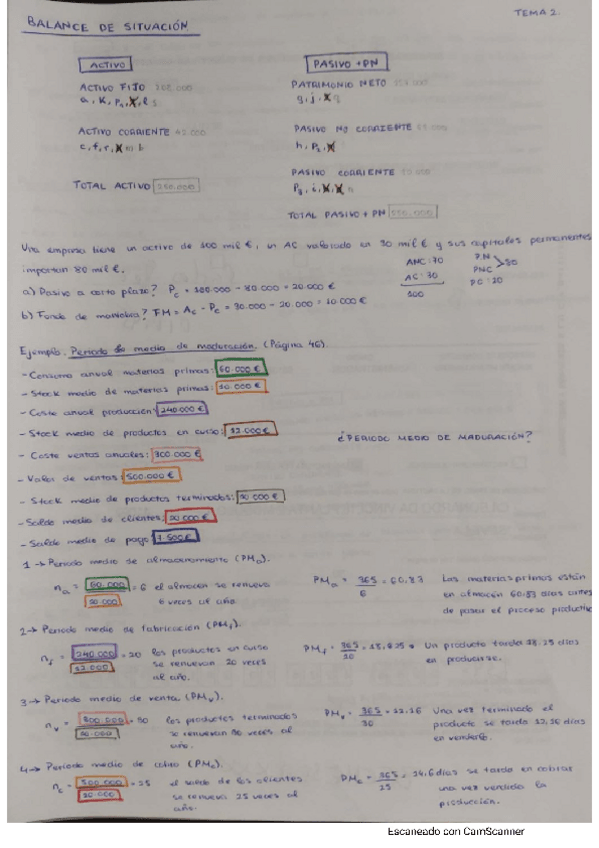 TEMA 2.
BALANCE DE SITUACIÓN
ACTIVO
PASIVO + PN
ACTIVO FIJO
PATRIMONIO NETO
ACTIVO CORRIENTE
PASIVO NO CORRIENTE
PASIVO CORRIENTE
TOTAL ACTIVO
TOTAL PASIVO + PN
Una empresa tiene un activo de 100 mil €, un AC valorado en 30 mil € y sus capitales permanentes
importan 80 mil €.
ANC: 70
AC: 30
100
PN
PNC
>80
PC: 20
a) Pasivo a corto plazo? Pc = 100.000 - 80.000 = 20.000 €
b) Fondo de maniobra? FM = Ac - Pc = 30.000 - 20.000 = 10.000 €
Ejemplo. Periodo medio de maduración. (Página 46)
- Consumo anual materias primas: 60.000 €
- Stock medio de materias primas: 10.000 €
- Coste anual producción: 240.000 €
- Stock medio de productos en curso: 12.000 €
¿PERIODO MEDIO DE MADURACIÓN?
- Coste ventas anuales: 300.000 €
- Valor de ventas: 500.000 €
- Stock medio de productos terminados: 10 000 €
- Saldo medio de clientes: 20 000 €
- Saldo medio de pago: 7.500 €
1 → Periodo medio de almacenamiento (PMa).
na = 60.000 / 10.000 = 6 el almacén se renueva
6 veces al año.
PMa = 365 / 6 = 60,83
Las materias primas están
en almacén 60,83 días antes
de pasar el proceso productivo
2 → Periodo medio de fabricación (PMf).
nf = 240.000 / 12.000 = 20 los productos en curso
se renuevan 20 veces
al año.
PMf = 365 /
Un producto tarda 18.25 días
en producirse.
3 → Periodo medio de venta (PMv).
nv = 300.000 / 10.000 = 30 los productos terminados
se renuevan 30 veces al
año.
PMv = 365 / 30 = 12.16
Una vez terminado el
producto se tarda 12,16 días
en venderlo.
4 → Periodo medio de cobro (PMc).
nc = 500.000 / 20.000 = 25 el saldo de los clientes
se renueva 25 veces al
año.
PMc = 365 / 25 = 14.6 días se tarda en cobrar
una vez vendido la
producción.
Escaneado con CamScanner